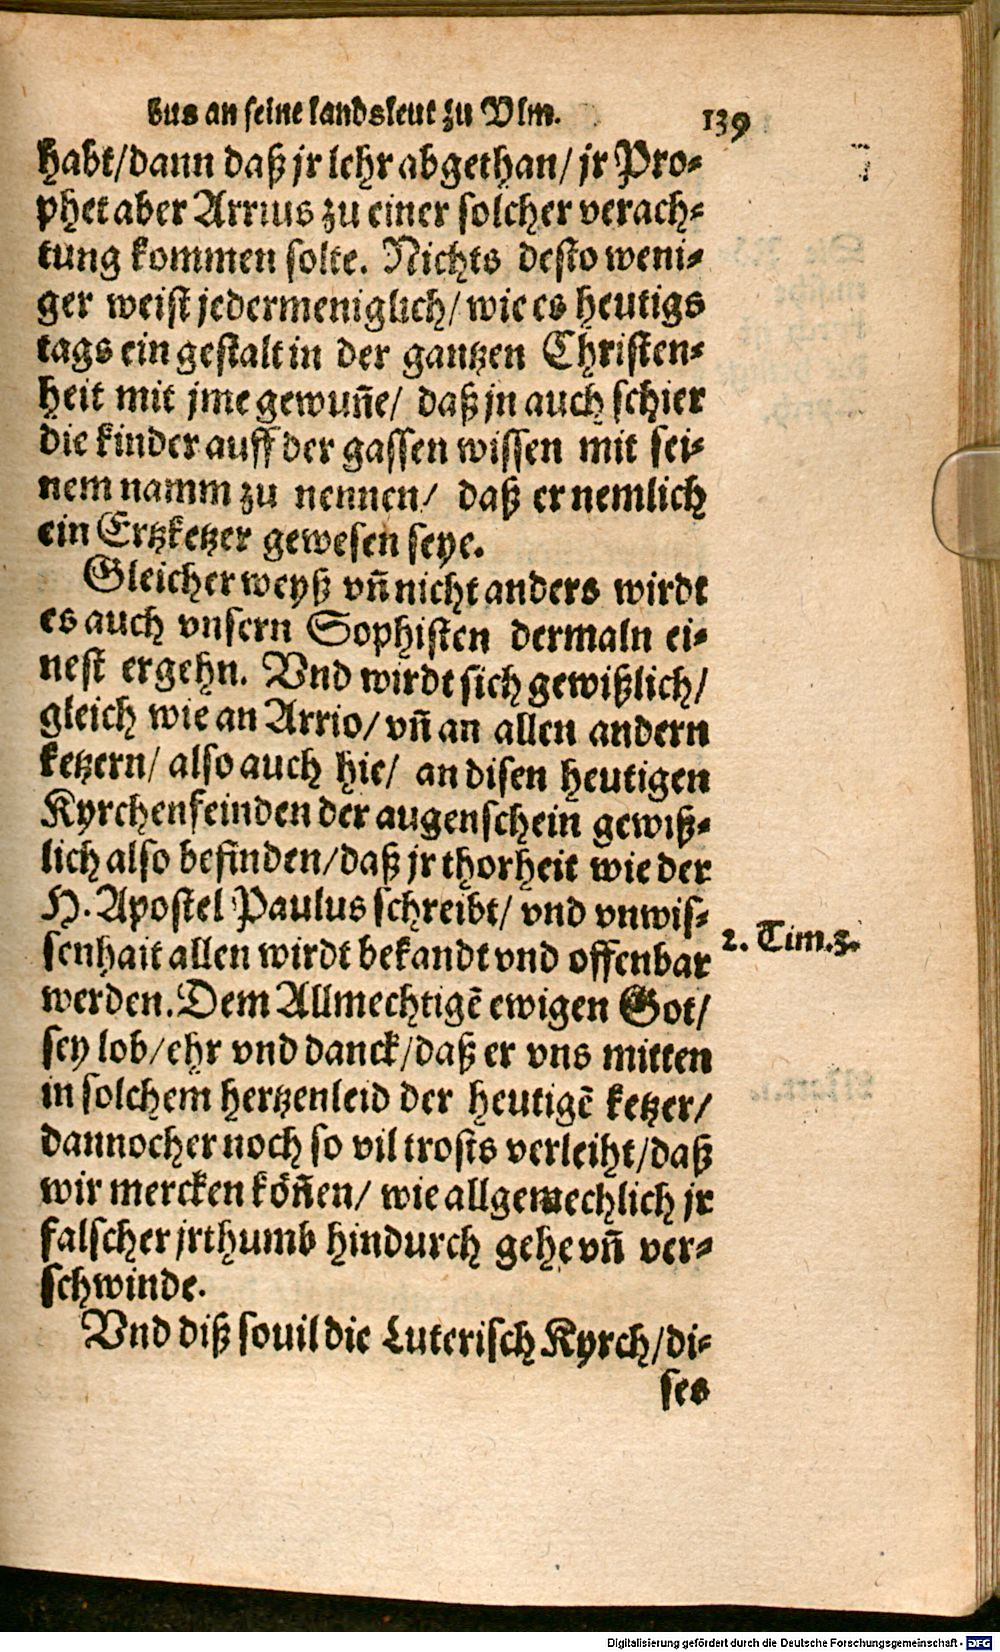 bus an seine landsleut zu Vlm. 139
habt/dann daß jr lehr abgethan/ jr Pro⸗
phet aber Arrius zu einer solcher verach⸗
tung kommen solte. Nichts desto weni⸗
ger weist jedermeniglich/ wie es heutigs
tags ein gestalt in der gantzen Christen⸗
heit mit jme gewuñe/ daß jn auch schier
die kinder auff der gassen wissen mit sei⸗
nem namm zu nennen/ daß er nemlich
ein Ertzketzer gewesen seye.
Gleicher weyß vñ nicht anders wirdt
es auch vnsern Sophisten dermaln ei⸗
nest ergehn. Vnd wirdt sich gewißlich/
gleich wie an Arrio/ vñ an allen andern
ketzern/ also auch hie/ an disen heutigen
Kyrchenfeinden der augenschein gewiß⸗
lich also befinden/daß jr thorheit wie der
H. Apostel Paulus schreibt/ vnd vnwis⸗
senhait allen wirdt bekandt vnd offenbar
2. Tim.3.
werden. Dem Allmechtigẽ ewigen Got/
sey lob/ehr vnd danck/daß er vns mitten
in solchem hertzenleid der heutigẽ ketzer/
dannocher noch so vil trosts verleiht/daß
wir mercken köñen/ wie allgemechlich jr
falscher jrthumb hindurch gehe vñ ver⸗
schwinde.
Vnd diß souil die Luterisch Kyrch/di⸗
ses
Digitalisierung gefördert durch die Deutsche Forschungsgemeinschaft - DFG